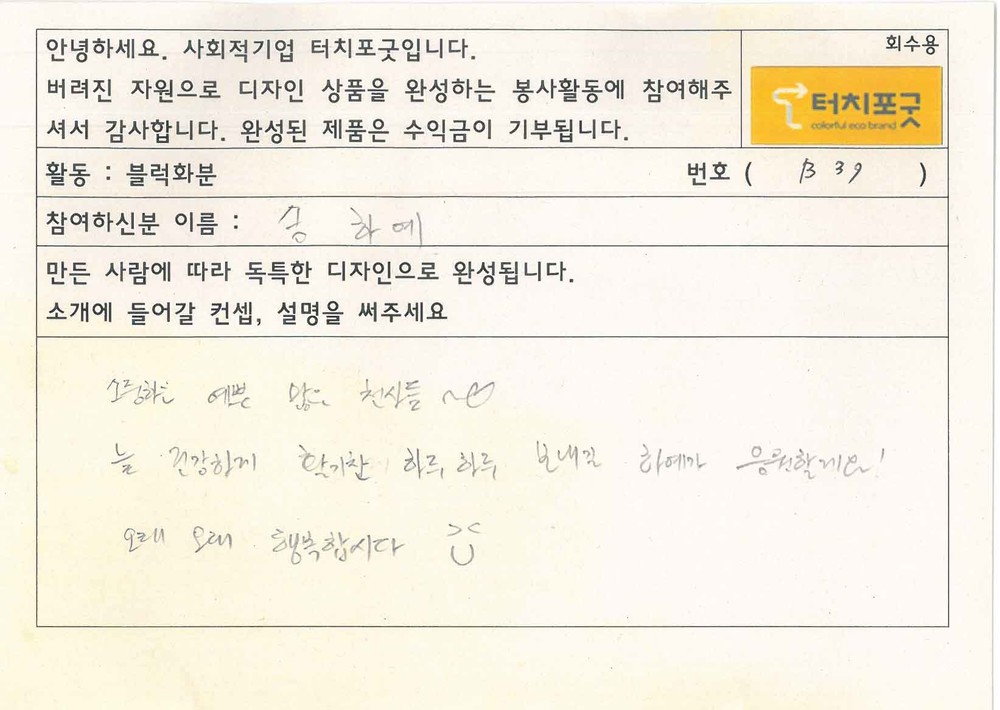 안녕하세요. 사회적기업 터치포굿입니다.
버려진 자원으로 디자인 상품을 완성하는 봉사활동에 참여해주
셔서 감사합니다. 완성된 제품은 수익금이 기부됩니다.
회수용
터치포굿
colorful eco brand
활동 : 블럭화분
번호 ( B 39 )
참여하신분 이름 : 송 하예
만든 사람에 따라 독특한 디자인으로 완성됩니다.
소개에 들어갈 컨셉, 설명을 써주세요
예쁜 많은 천사들 ~♡
늘 건강하게 활기찬 하루 하루 보내길 하예가 응원할게요!
오래 오래 행복합시다